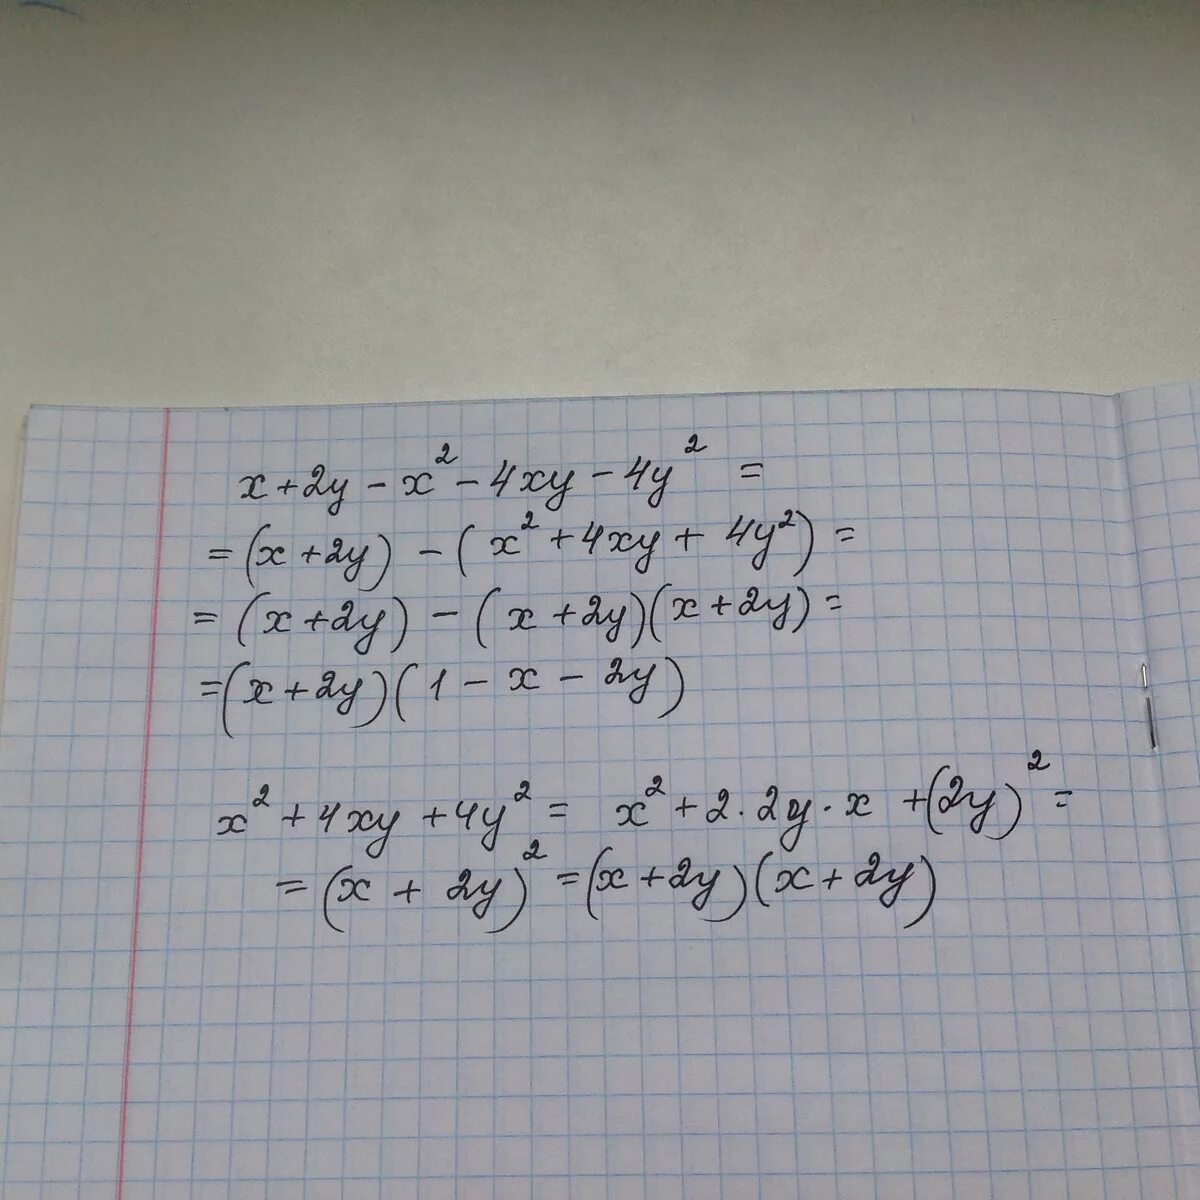 x + 2y - x² - 4xy - 4y² =
= (x + 2y) - (x² + 4xy + 4y²) =
= (x + 2y) - (x + 2y)(x + 2y) =
= (x + 2y)(1 - x - 2y)
x² + 4xy + 4y² = x² + 2 · 2y · x + (2y)² =
= (x + 2y)² = (x + 2y)(x + 2y)